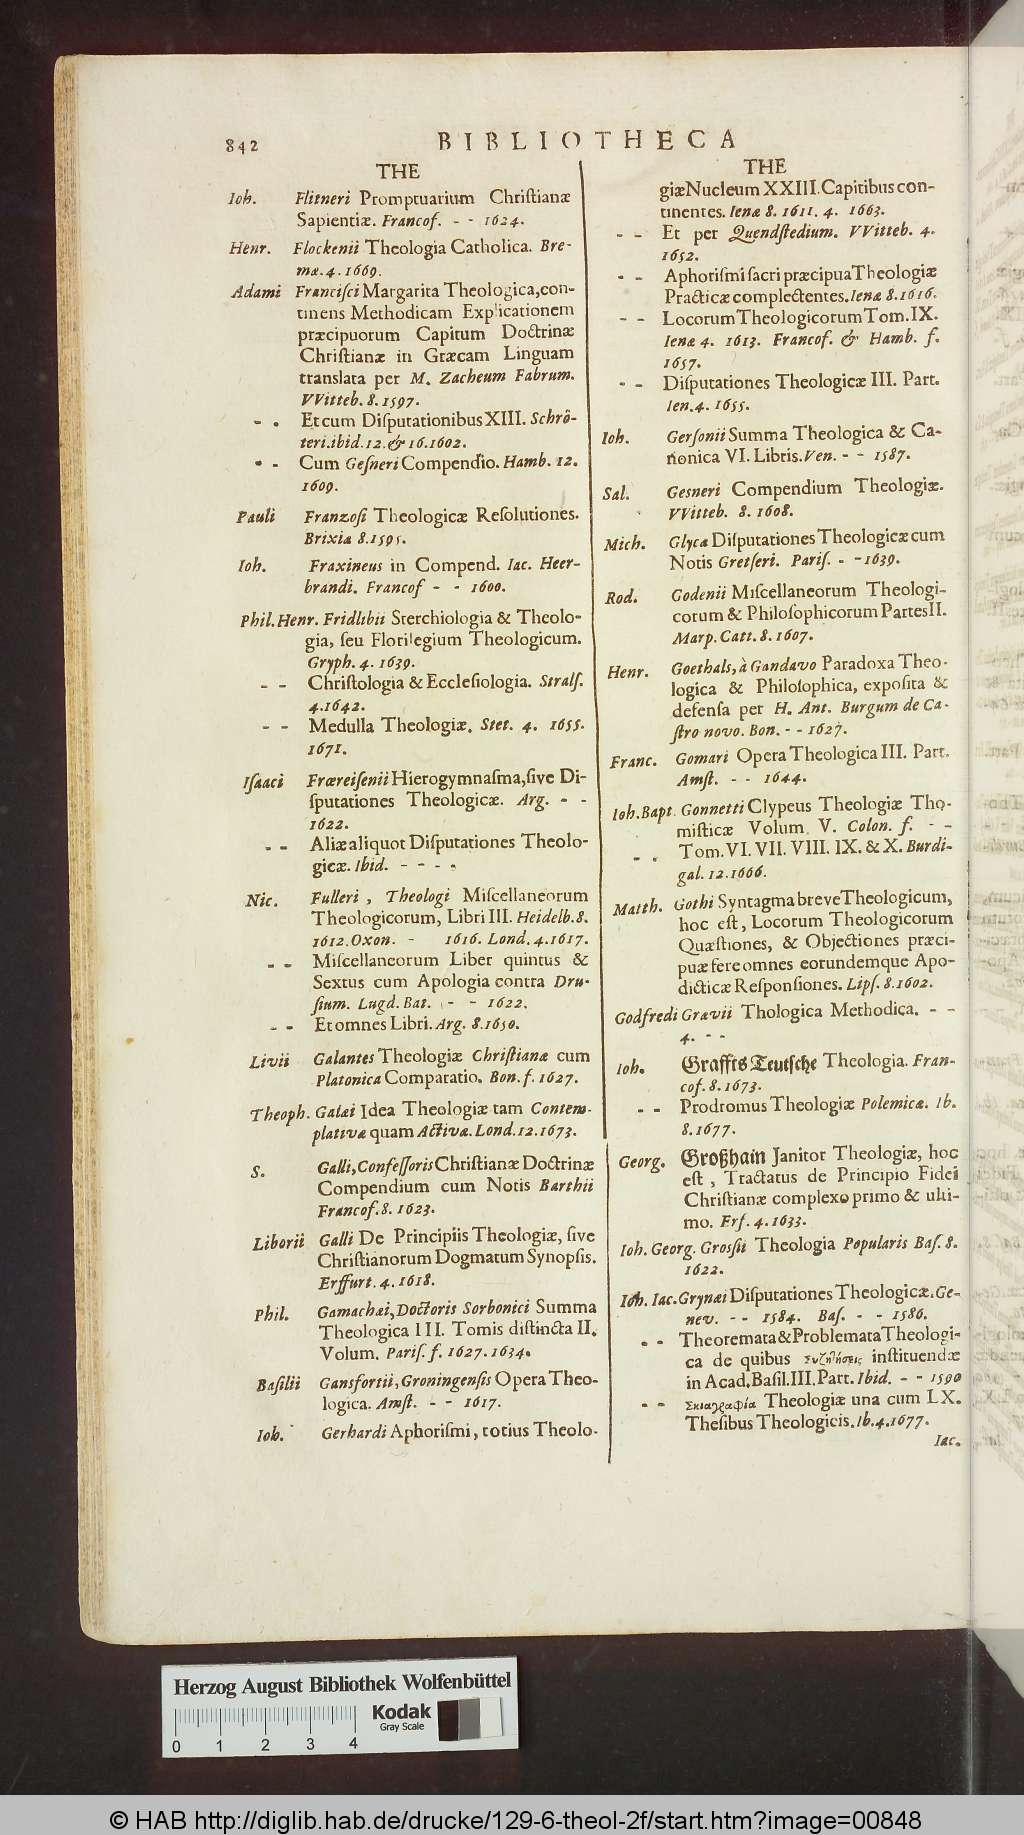 842
BIBLIOTHECA
THE
Ioh. Flitneri Promptuarium Chriſtianæ
Sapientiæ. Francof. - - 1624.
Henr. Flockenii Theologia Catholica. Bre-
mæ. 4. 1669.
Adami Franciſci Margarita Theologica, con-
tinens Methodicam Explicationem
præcipuorum Capitum Doctrinæ
Chriſtianæ in Græcam Linguam
translata per M. Zacheum Fabrum.
VVitteb. 8. 1597.
- - Et cum Diſputationibus XIII. Schrö-
teri. ibid. 12. & 16. 1602.
- - Cum Geſneri Compendio. Hamb. 12.
1609.
Pauli Franzoſi Theologicæ Reſolutiones.
Brixiæ 8. 1595.
Ioh. Fraxineus in Compend. Iac. Heer-
brandi. Francof - - 1600.
Phil. Henr. Fridlibii Sterchiologia & Theolo-
gia, ſeu Florilegium Theologicum.
Gryph. 4. 1639.
- - Chriſtologia & Eccleſiologia. Stralſ.
4. 1642.
- - Medulla Theologiæ. Stet. 4. 1655.
1671.
Iſaaci Fræreiſenii Hierogymnaſma, ſive Di-
ſputationes Theologicæ. Arg. - -
1622.
- - Aliæ aliquot Diſputationes Theolo-
gicæ. Ibid. - - - -
Nic. Fulleri, Theologi Miſcellaneorum
Theologicorum, Libri III. Heidelb. 8.
1612. Oxon. - 1616. Lond. 4. 1617.
- - Miſcellaneorum Liber quintus &
Sextus cum Apologia contra Dru-
ſium. Lugd. Bat. - - 1622.
- - Et omnes Libri. Arg. 8. 1650.
Livii Galantes Theologiæ Chriſtianæ cum
Platonica Comparatio. Bon. f. 1627.
Theoph. Galæi Idea Theologiæ tam Contem-
plativæ quam Activæ. Lond. 12. 1673.
S. Galli, Confeſſoris Chriſtianæ Doctrinæ
Compendium cum Notis Barthii
Francof. 8. 1623.
Liborii Galli De Principiis Theologiæ, ſive
Chriſtianorum Dogmatum Synopſis.
Erffurt. 4. 1618.
Phil. Gamachæi, Doctoris Sorbonici Summa
Theologica III. Tomis diſtincta II.
Volum. Pariſ. f. 1627. 1634.
Baſilii Gansfortii, Groningenſis Opera Theo-
logica. Amſt. - - 1617.
Ioh. Gerhardi Aphoriſmi, totius Theolo-
THE
giæ Nucleum XXIII. Capitibus con-
tinentes. Ienæ 8. 1611. 4. 1663.
- - Et per Quendſtedium. VVitteb. 4.
1652.
- - Aphoriſmi ſacri præcipua Theologiæ
Practicæ complectentes. Ienæ 8. 1616.
- - Locorum Theologicorum Tom. IX.
Ienæ 4. 1613. Francof. & Hamb. f.
1657.
- - Diſputationes Theologicæ III. Part.
Ien. 4. 1655.
Ioh. Gerſonii Summa Theologica & Ca-
nonica VI. Libris. Ven. - - 1587.
Sal. Gesneri Compendium Theologiæ.
VVitteb. 8. 1608.
Mich. Glycæ Diſputationes Theologicæ cum
Notis Gretſeri. Pariſ. - - 1639.
Rod. Godenii Miſcellaneorum Theologi-
corum & Philoſophicorum Partes II.
Marp. Catt. 8. 1607.
Henr. Goethals, à Gandavo Paradoxa Theo-
logica & Philoſophica, expoſita &
defenſa per H. Ant. Burgum de Ca-
ſtro novo. Bon. - - 1627.
Franc. Gomari Opera Theologica III. Part.
Amſt. - - 1644.
Ioh. Bapt. Gonnetti Clypeus Theologiæ Tho-
miſticæ Volum. V. Colon. f. - -
- - Tom. VI. VII. VIII. IX. & X. Burdi-
gal. 12. 1666.
Matth. Gothi Syntagma breve Theologicum,
hoc eſt, Locorum Theologicorum
Quæſtiones, & Objectiones præci-
puæ fere omnes eorundemque Apo-
dicticæ Reſponſiones. Lipſ. 8. 1602.
Godfredi Grævii Thologica Methodica. - -
4. - -
Ioh. Graffts Teutſche Theologia. Fran-
cof. 8. 1673.
- - Prodromus Theologiæ Polemicæ. Ib.
8. 1677.
Georg. Großhain Janitor Theologiæ, hoc
eſt, Tractatus de Principio Fidei
Chriſtianæ complexo primo & ulti-
mo. Erf. 4. 1633.
Ioh. Georg. Grosſii Theologia Popularis Baſ. 8.
1622.
Ioh. Iac. Grynæi Diſputationes Theologicæ. Ge-
nev. - - 1584. Baſ. - - 1586.
- - Theoremata & Problemata Theologi-
ca de quibus Συζητήσεις inſtituendæ
in Acad. Baſil. III. Part. Ibid. - - 1590
- - Σκιαγραφία Theologiæ una cum LX.
Theſibus Theologicis. Ib. 4. 1677.
Iac.
Herzog August Bibliothek Wolfenbüttel
Kodak
Gray Scale
0 1 2 3 4
© HAB http://diglib.hab.de/drucke/129-6-theol-2f/start.htm?image=00848